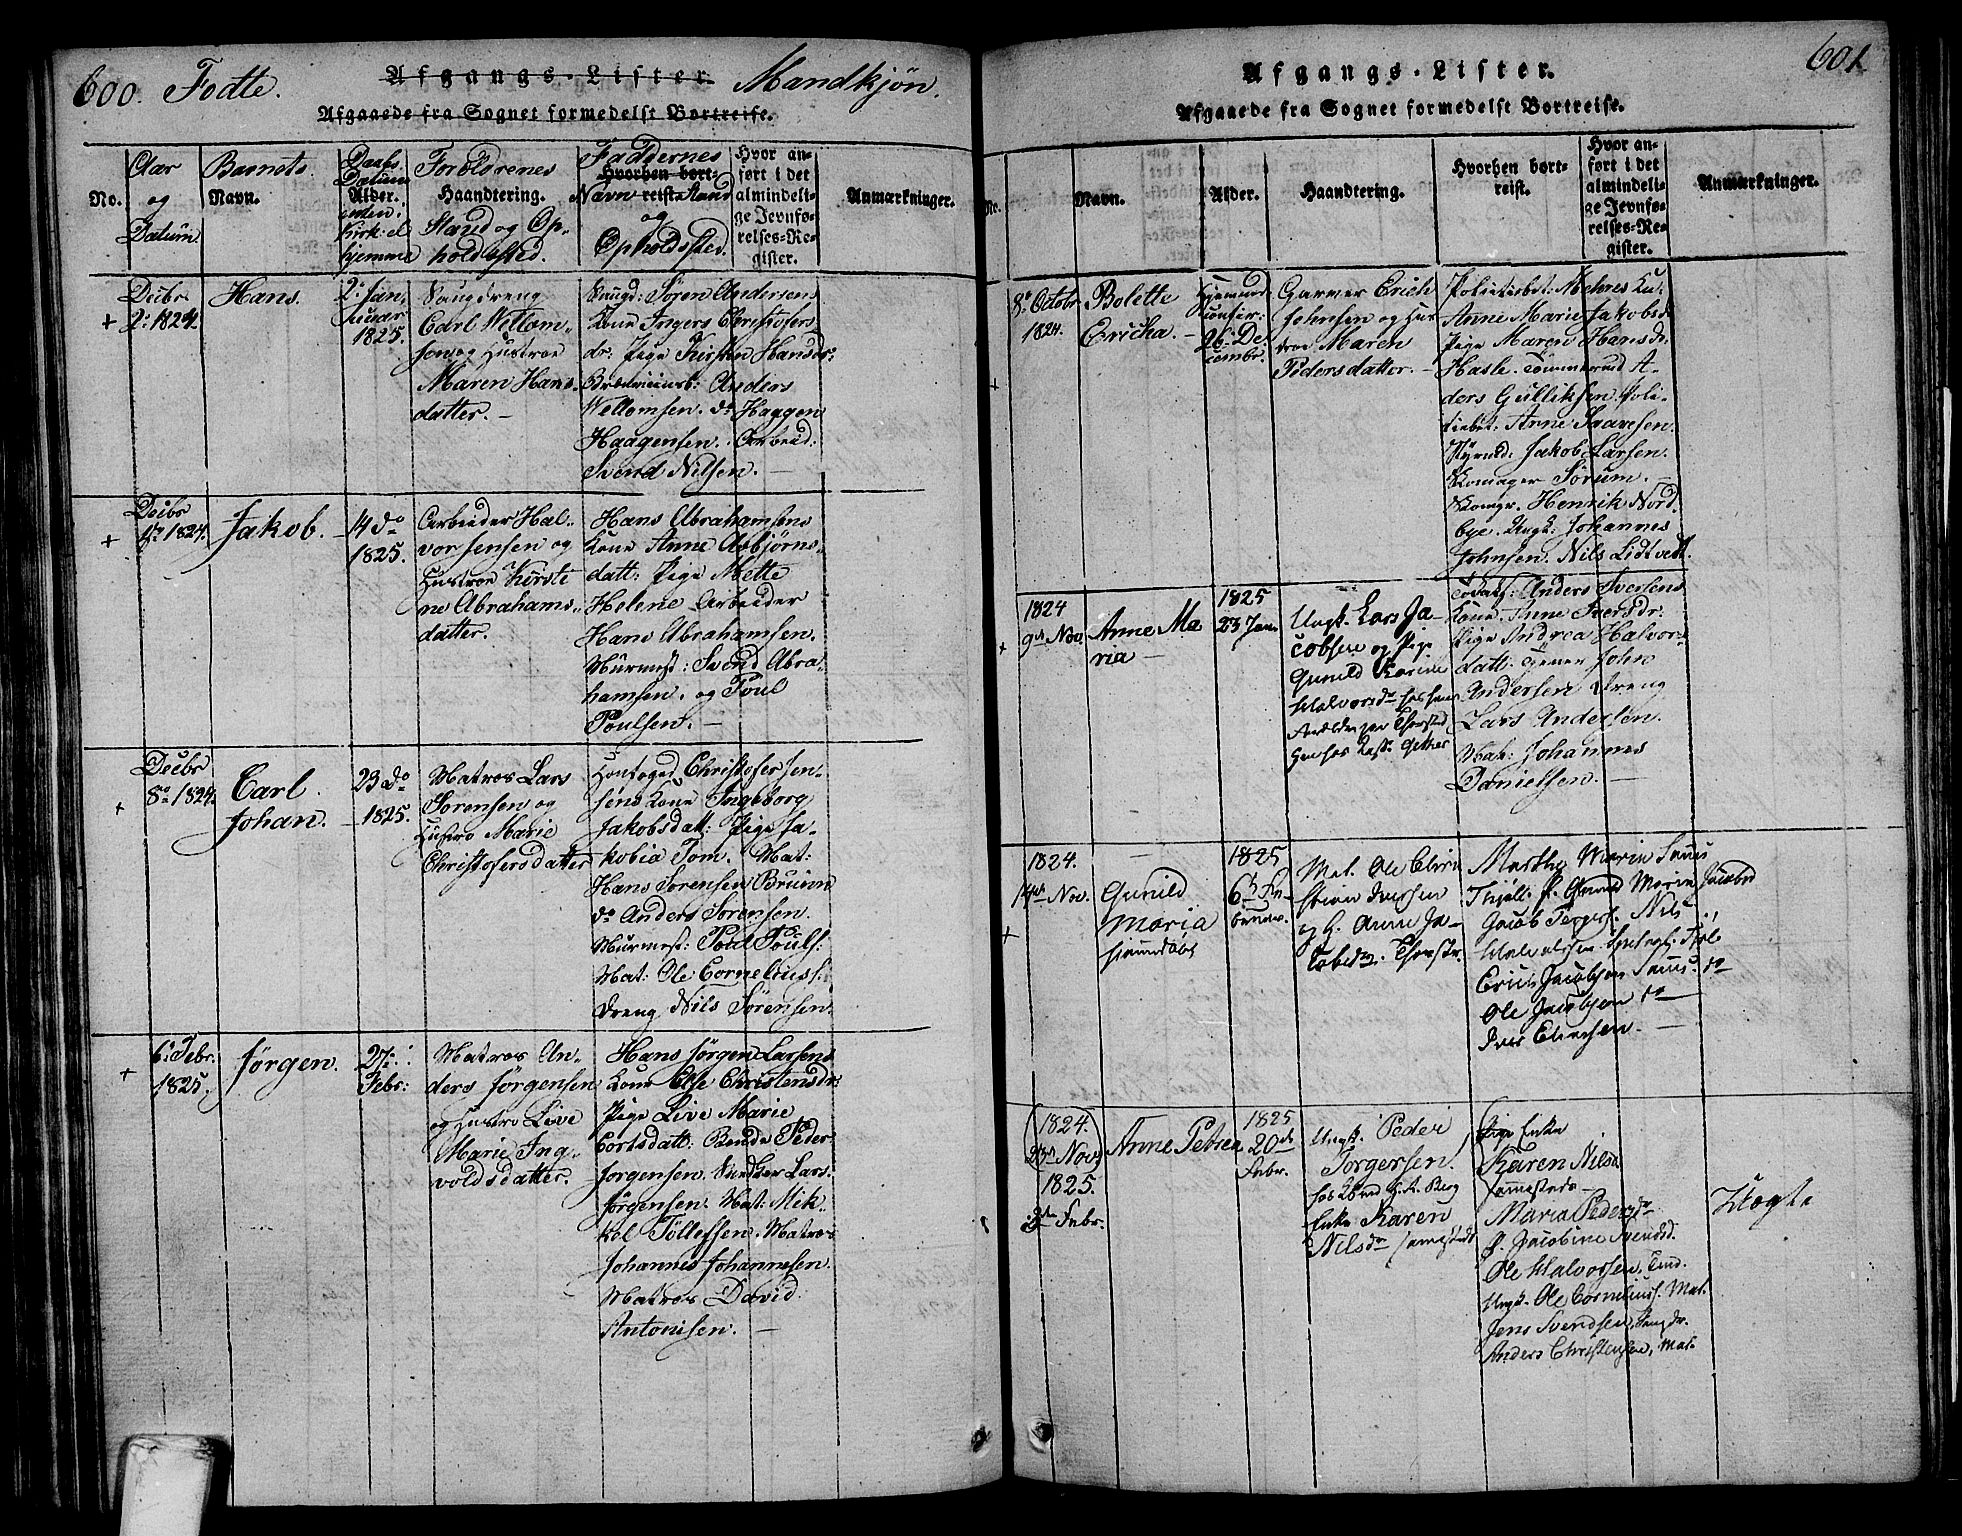 600. Fødte. Afgangs-Lister. Mandkjøn.
Afgaaede fra Sognet formedelst Bortreise.
No.
Aar
og
Datum
Barnets
Navn.
Daabs
Datum
Alder.
enten i
Kirk: el
hjemme
Forældrenes
Haandtering.
Stand og Op-
holdssted.
Faddernes
Hvorhen bort-
Navn reist Stand
og
Opholdssted.
Hvor an-
ført i det
almindeli-
ge Jevnfø-
relses-Re-
gister.
Anmærkninger.
Decbr
2: 1824.
+
Hans.
2: Jan
uar
1825.
Saugdreng
Carl Wellom-
sen og Hustroe
Maren Hans-
datter. —
Saugd: Søren Andersens
Kone Ingers Christofers
dr. Pige Kirsten Hansdr:
Brændeviinsb: Anders
Wellomsen. do Haagen
Haagensen. Arbeid:
Svend Nilsen. —
Decbr
17: 1824.
+
Jakob. —
14 do
1825.
Arbeider Hal-
vor Jensen og
Hustroe Kirste
ne Abrahams-
datter.
Hans Abrahamsens
Kone Anne Asbjørns-
datt: Pige Mette
Helene Arbeider
Hans Abrahamsen.
Murmest: Svend Abra-
hamsen. og Poul
Poulsen. —
Decbr
8: 1824.
+
Carl
Johan. —
23 do
1825.
Matros Lars
Sørensen og
Hustro Marie
Christofersdatter
Christofersen-
sens Kone Ingeborg
Jakobsdatt: Pige Ja-
kobia Tom. Mat:
Hans Sørensen Bruun
do Anders Sørensen.
Murmest: Poul Pouls:
Mat: Ole Corneliuss:
Dreng Nils Sørensen.
6: Febr.
1825.
+
Jørgen.
27:
Febr:
Matros An-
ders Jørgensen
og Hustro Live
Marie Ing-
voldsdatter.
Hans Jørgen Larsens
Kone Else Christensdr:
Pige Live Marie
Cortsdatt: Bonde Peder
Jørgensen. Snedker Lars
Jørgensen. Mat: Mik-
kel Tollefsen. Matros
Johannes Johannesen.
Matros David
Antonisen. —
601
Afgangs-Lister.
Afgaaede fra Sognet formedelst Bortreise.
No.
Navn.
Alder.
Haandtering.
Hvorhen bort-
reist.
Hvor an-
ført i det
almindeli-
ge Jevnfø-
relses-Re-
gister.
Anmærkninger.
8: Octobr
1824.
+
Bolette
Ericka. —
26: De-
cembr.
Garver Erich
Johnsen og Hus
troe Maren
Pedersdatter. —
Politiebet: Mehres Ko:
Anne Marie Jakobsd
Pige Maren Hansdr.
Hasle. Tømmermd A-
ders Gulliksen Poli-
tiebet: Arne Ivarsen.
Jakob Larsen.
Skomager Sørum. —
Skomgr. Henrik Nord
bye. Ungk. Johannes
Johnsen. Nils Lidtvedt.
1824
9de Nov.
+
Anne Ma
ria —
1825
23 Jan.
Ungk. Lars Ja-
cobsen og Pige
Gunild Karine
Halvorsdr
Anders Iversens
Kone: Anne Iversdr:
Pige Andrea Halvors-
datt: John
Andersen Dreng
Lars Andersen.
Johannes
Danielsen. —
1824.
14de Nov.
+
Gunild
Maria
hjemdøbt
1825
6te Fe-
bruar.
Mat. Ole Chri
stian Iversen
og H. Anne Ja-
cobsdr.
Marthe Marie
Gunild Maria Jacobsd
Jacob
Nils
Halvorsen
Erich Jacobsen
Ole Jacobsen do —
Iver Ellingsen. —
1824.
23de Nov.
1825.
3die Febr.
Anne Petrea
1825
20de
Febr.
Ungk. Peder
Jørgensen.
Enke Karen
Nilsdr
Pige Enke
Karen Nilsd
Maria Pedersdr
P. Jacobine Svendsd.
Ole Halvorsen,
Ungk. Ole Corneliuss. Mat.
Jens Svendsen,
Anders Christensen, Mat.